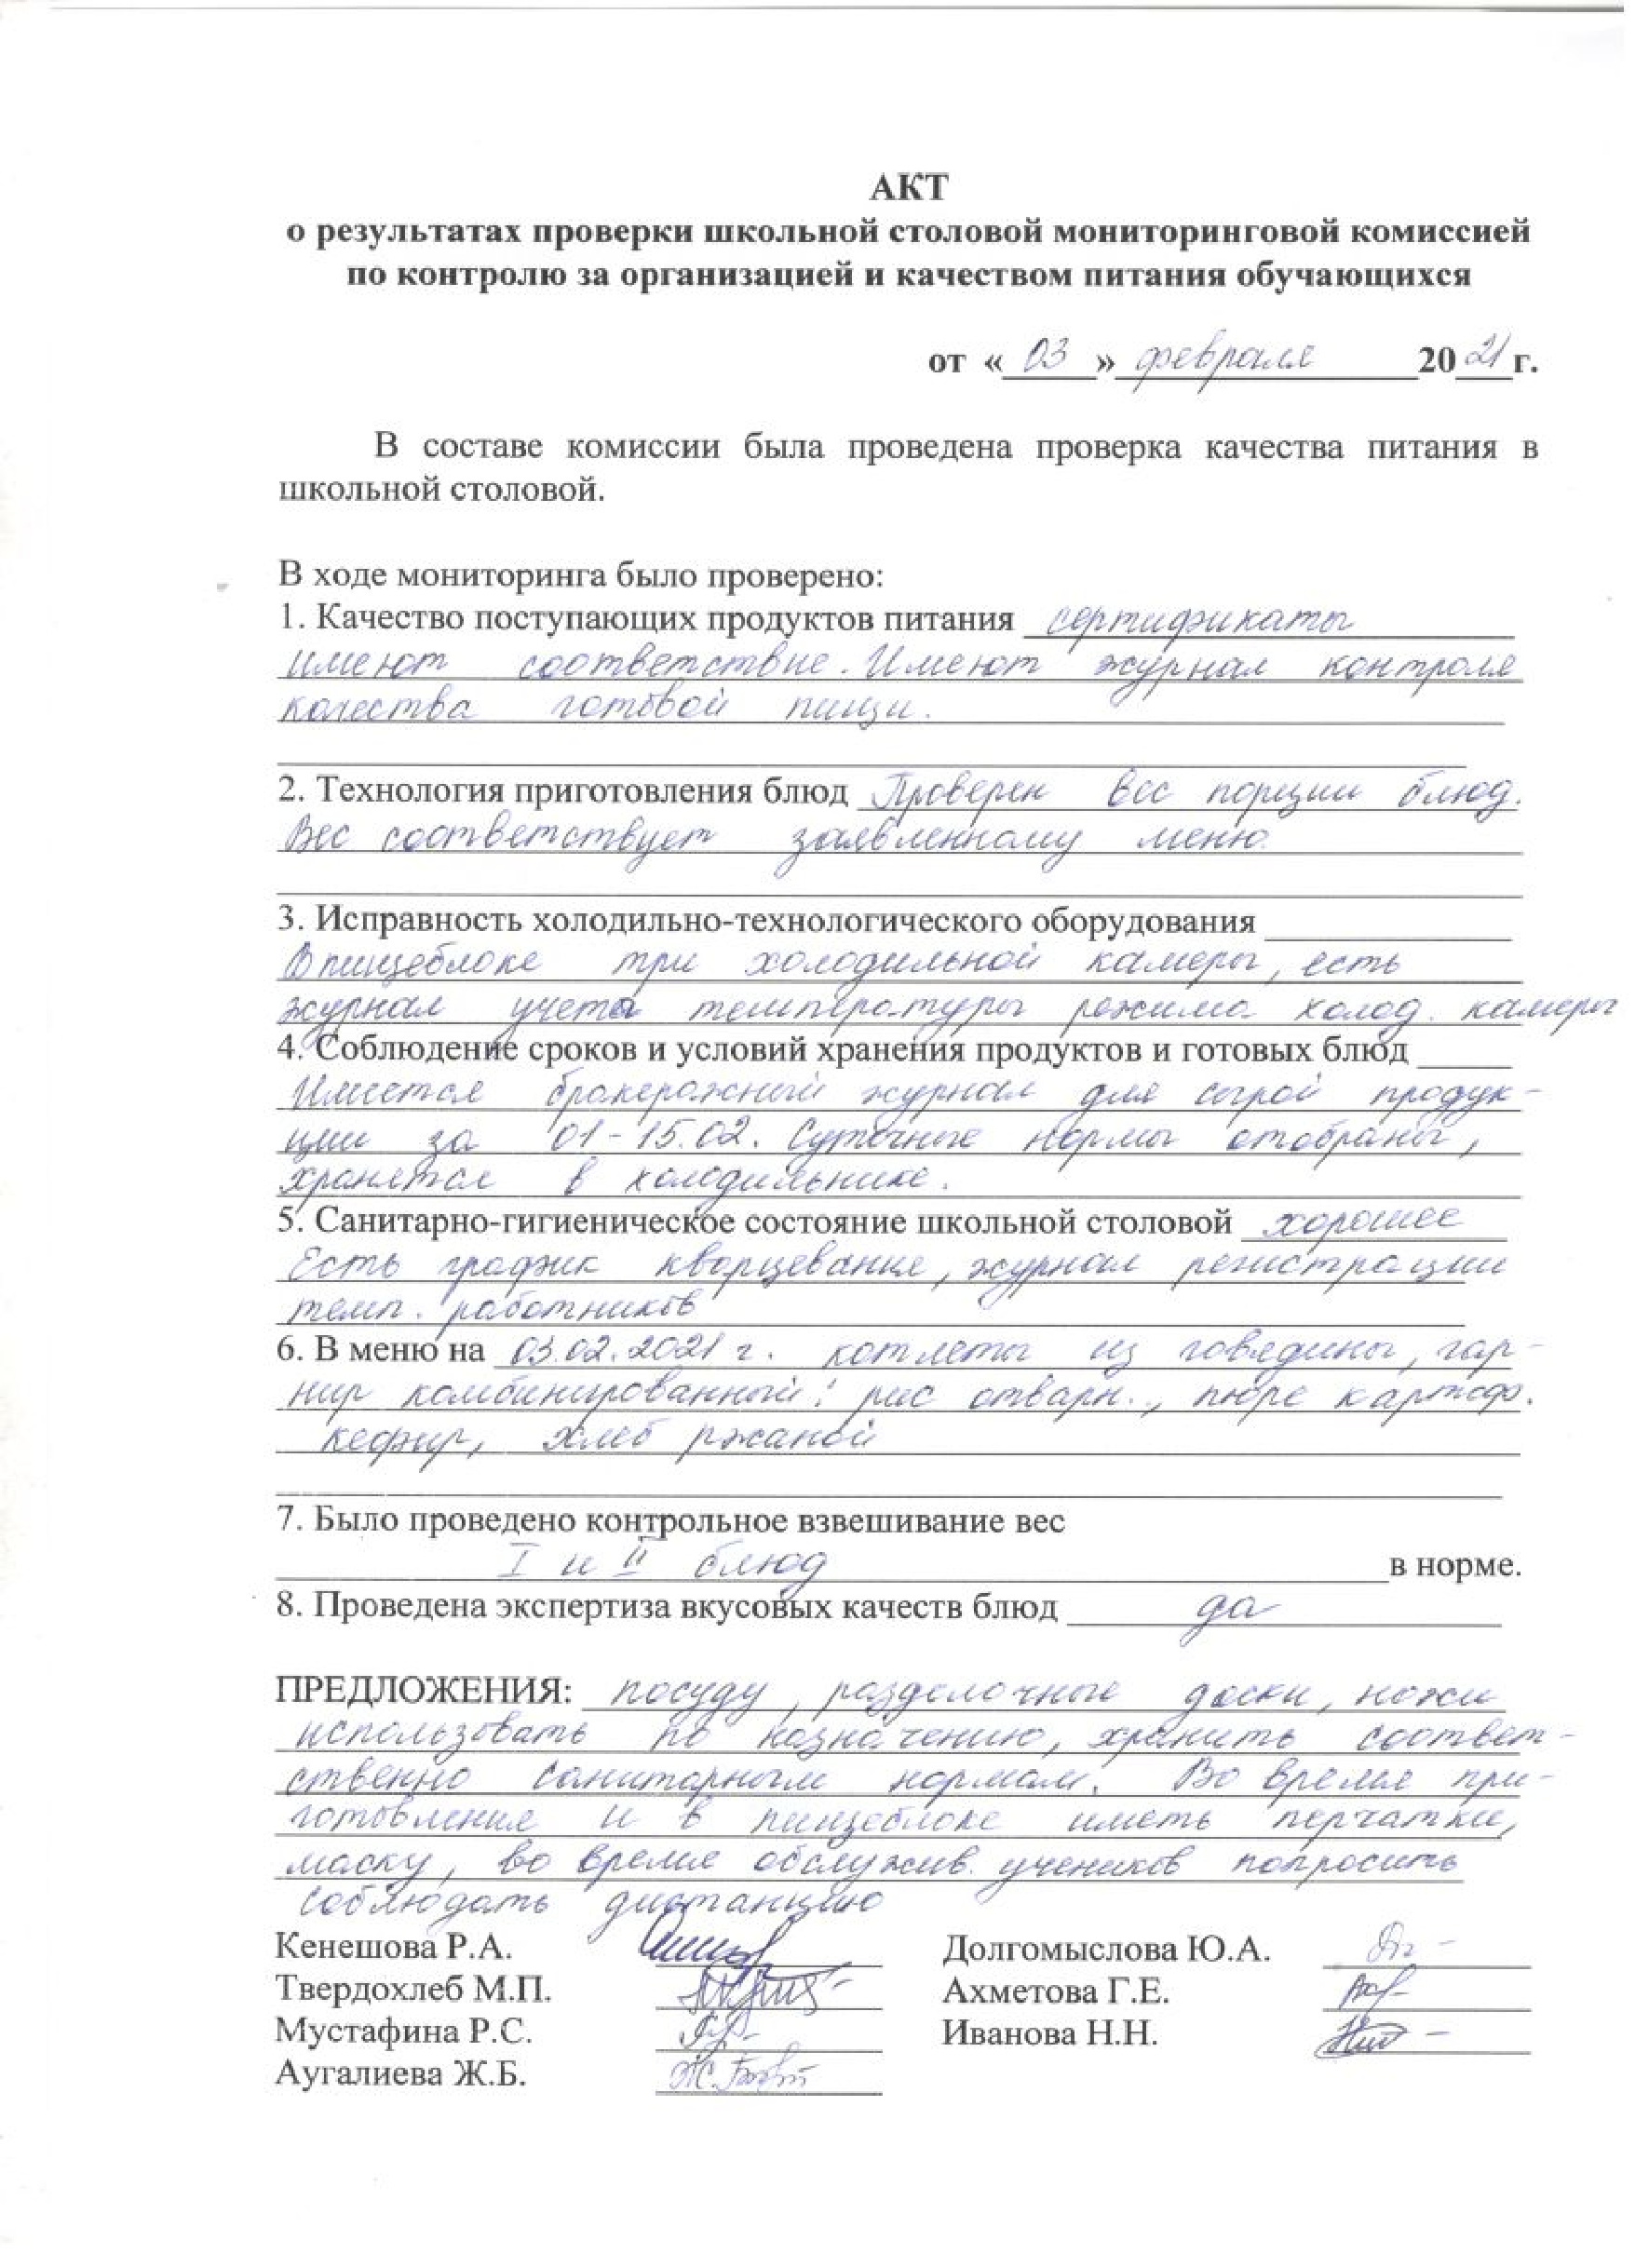 АКТ
о результатах проверки школьной столовой мониторинговой комиссией
по контролю за организацией и качеством питания обучающихся
от «03» февраля 2021 г.
В составе комиссии была проведена проверка качества питания в
школьной столовой.
В ходе мониторинга было проверено:
1. Качество поступающих продуктов питания сертификаты
имеют соответствие. Имеют журнал контроля
качества готовой пищи.
2. Технология приготовления блюд Проверен вес порции блюд.
Вес соответствует заявленному меню.
3. Исправность холодильно-технологического оборудования
В пищеблоке три холодильной камеры, есть
журнал учета температуры режима холод. камеры
4. Соблюдение сроков и условий хранения продуктов и готовых блюд
Имеется бракеражный журнал для сырой продук-
ции за 01-15.02. Суточные нормы отобраны,
хранятся в холодильнике.
5. Санитарно-гигиеническое состояние школьной столовой хорошее
Есть график кварцевания, журнал регистрации
темп. работников
6. В меню на 03.02.2021 г. котлеты из говядины, гар-
нир комбинированный: рис отварн., пюре картоф.
кефир, хлеб ржаной
7. Было проведено контрольное взвешивание вес
I и II блюд в норме.
8. Проведена экспертиза вкусовых качеств блюд да
ПРЕДЛОЖЕНИЯ: посуду, разделочные доски, ножи
использовать по назначению, хранить соответ-
ственно санитарным нормам. Во время при-
готовления и в пищеблоке иметь перчатки,
маску, во время обслужив. учеников попросить
соблюдать дистанцию
Кенешова Р.А. Долгомыслова Ю.А.
Твердохлеб М.П. Ахметова Г.Е.
Мустафина Р.С. Иванова Н.Н.
Аугалиева Ж.Б.